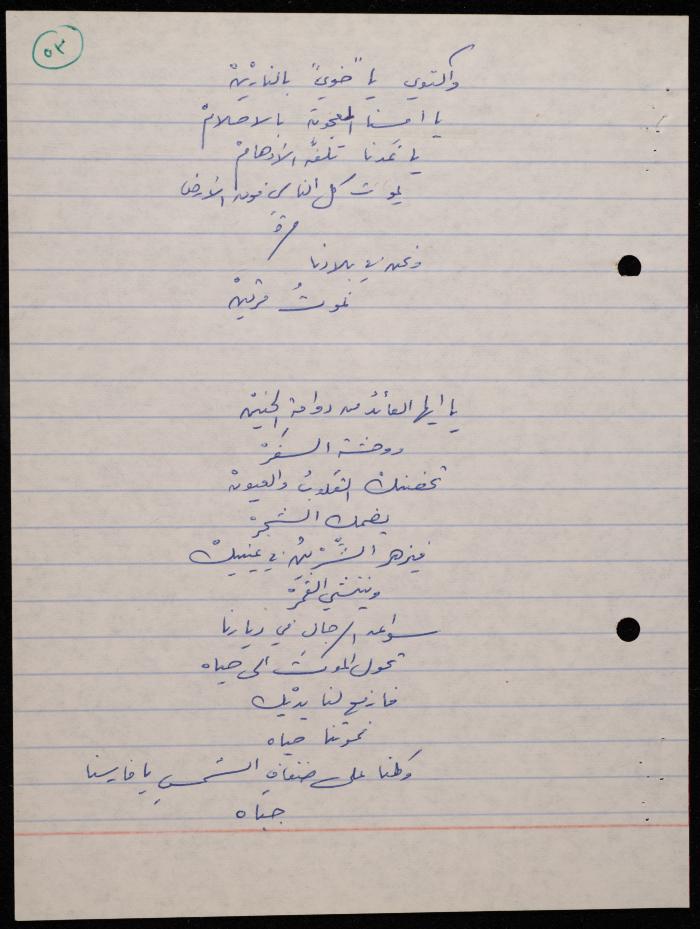 ٥٣
واكتوي يا "خوي" بالنارينْ
يا أمسنا المعجونَ بالاحلامْ
يا غَدنا تلفّه الأوهامْ
يموت كل الناس فوق الأرض
مرةً
ونحن في بلادنا
نموتُ مرتينْ
يا ايها العائد من دوامة الحنينْ
ووحشة السفَرْ
تحضنكْ القلوبُ والعيونْ
يضمك الشجرْ
فيزهر النّسْرينُ في عينيكْ
وينتشي القمَرْ
سواعد الرجال في ديارنا
تحول الموتَ الى حياه
فارفع لنا يديْك
نموتنا حياه
وكلنا على ضفافِ الشمس يا فارسنا
جباه